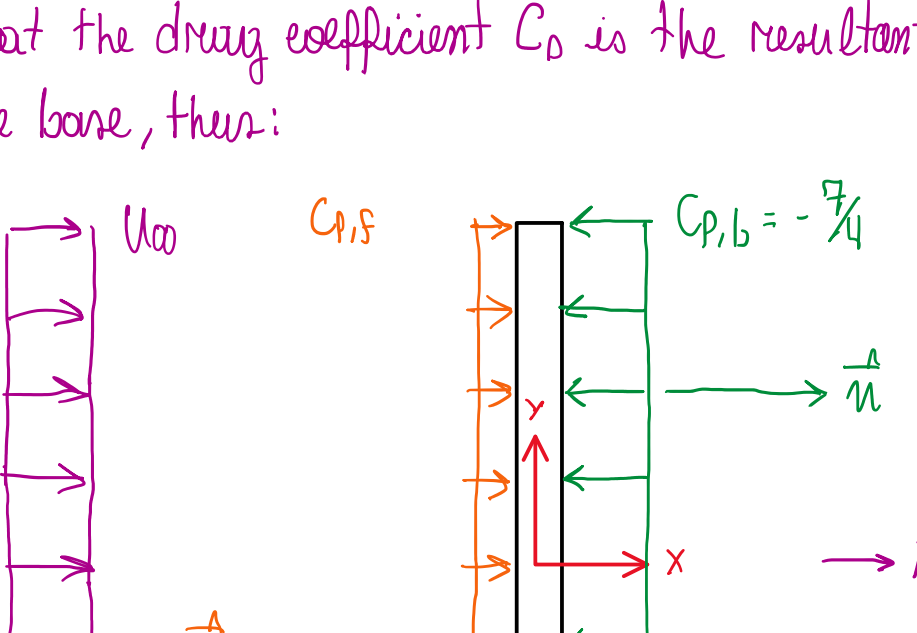 at the drag coefficient C_D is the resultan
e base, thus:
U∞
C_{P,f}
C_{P,b} = - 7/4
n
Y
X